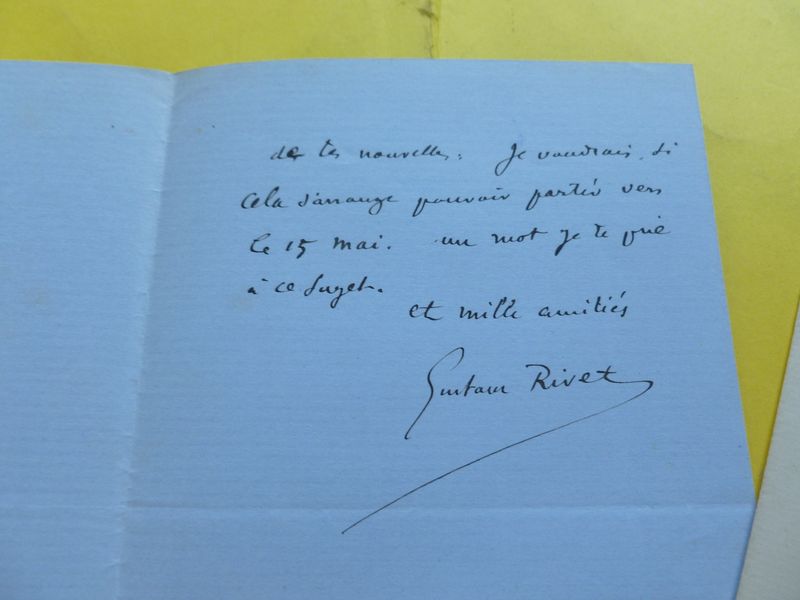 de tes nouvelles. Je voudrais, si
cela s'arrange pouvoir partir vers
le 15 mai. un mot je te prie
à ce sujet.
et mille amitiés
Gustave Rivet